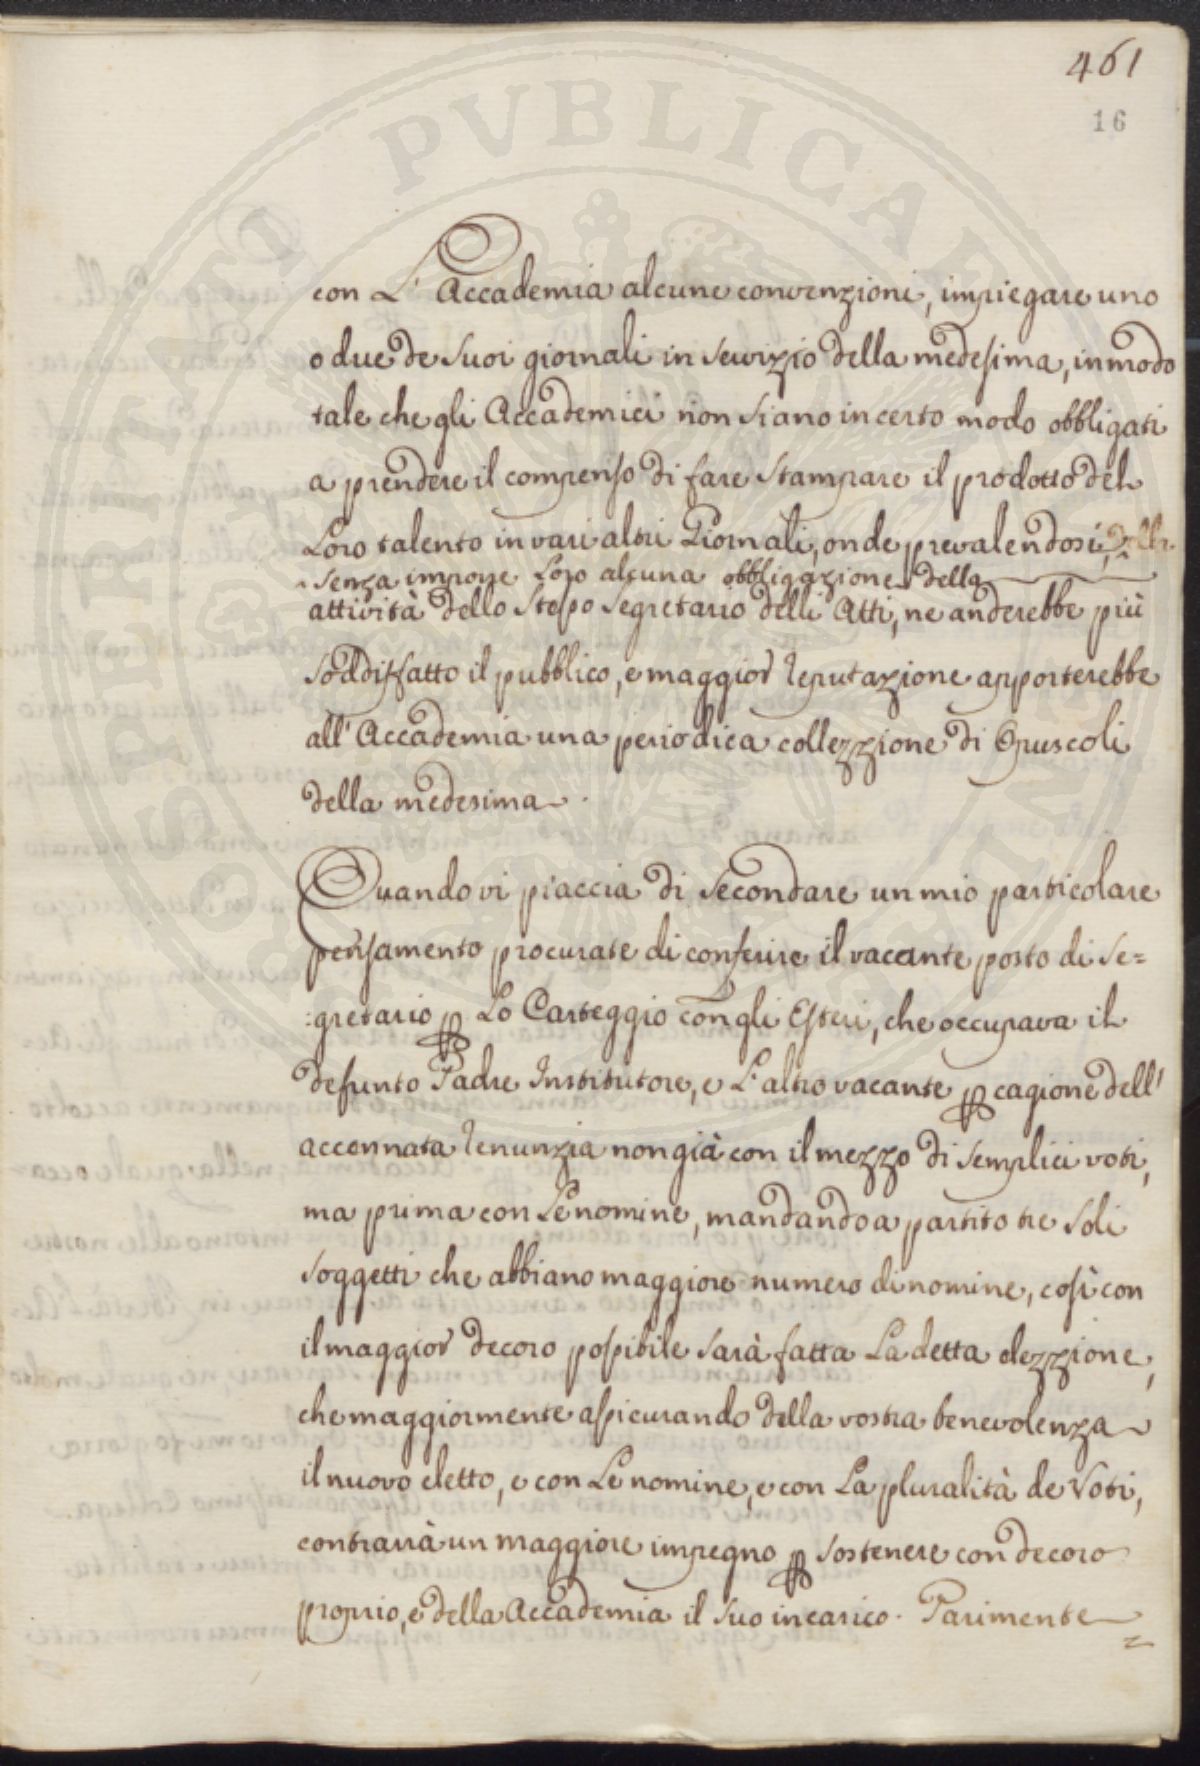 461
16
con L'Accademia alcune convenzioni, impiegare uno
o due de Suoi giornali in Servizio della medesima, in modo
tale che gli Accademici non siano in certo modo obbligati
a prendere il compenso di fare stampare il prodotto del
Loro talento in vari altri Giornali, onde prevalendosi,
senza imporre Loro alcuna obbligazione della
attività dello Stesso Segretario delli Atti, ne anderebbe più
soddisfatto il pubblico, e maggior reputazione apporterebbe
all'Accademia una periodica collezzione di Opuscoli
della medesima.
Quando vi piaccia di Secondare un mio particolare
pensamento procurate di conferire il vacante posto di Se=
:gretario p Lo Carteggio con gli Esteri, che occupava il
defunto Padre Institutore, e L'altro vacante p cagione dell'
accennata renunzia non già con il mezzo di semplici voti,
ma prima con Le nomine, mandando a partito tre Soli
soggetti che abbiano maggiore numero di nomine, così con
il maggior decoro possibile sarà fatta La detta elezzione,
che maggiormente assicurando della vostra benevolenza
il nuovo eletto, e con Le nomine, e con La pluralità de Voti,
contrarrà un maggiore impegno p sostenere con decoro
proprio, e della Accademia il suo incarico. Parimente
PROSPERITATI PVBLICAE